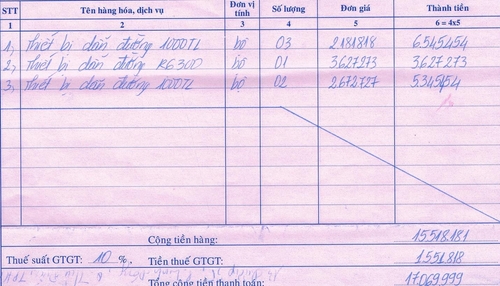 STT Tên hàng hóa, dịch vụ Đơn vị tính Số lượng Đơn giá Thành tiền
1 2 3 4 5 6 = 4x5
1, Thiết bị dẫn đường 1000TL bộ 03 2181818 6.545.454
2, Thiết bị dẫn đường RG300 bộ 01 3.627.273 3.627.273
3, Thiết bị dẫn đường 1000TL bộ 02 2.672.727 5.345.454
Cộng tiền hàng: 15.518.181
Thuế suất GTGT: 10 %, Tiền thuế GTGT: 1.551.818
Tổng cộng tiền thanh toán: 17.069.999